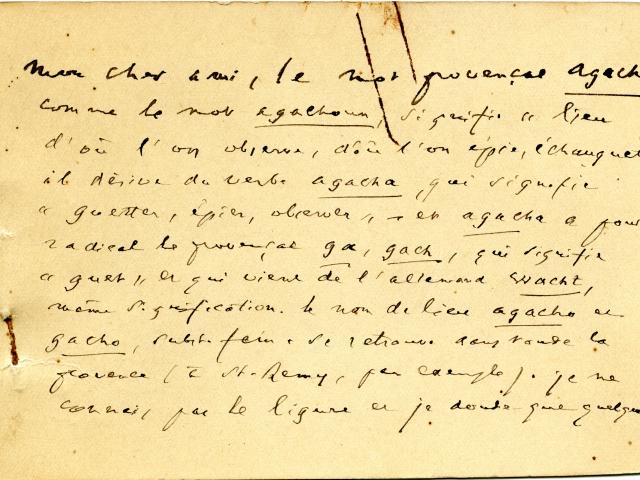 mon cher ami, le mot provençal agach
comme le mot agachoun, signifie « lieu
d'où l'on observe, d'où l'on épie, échauguet
il dérive du verbe agacha, qui signifie
« guetter, épier, observer », et agacha a pour
radical le provençal ga, gach, qui signifie
« guet » et qui vient de l'allemand wacht,
même signification. le nom de lieu agacho ou
gacho, subst. fém. se retrouve dans toute la
provence (à St-Remy, par exemple). je ne
connais pas le ligure et je doute que quelqu